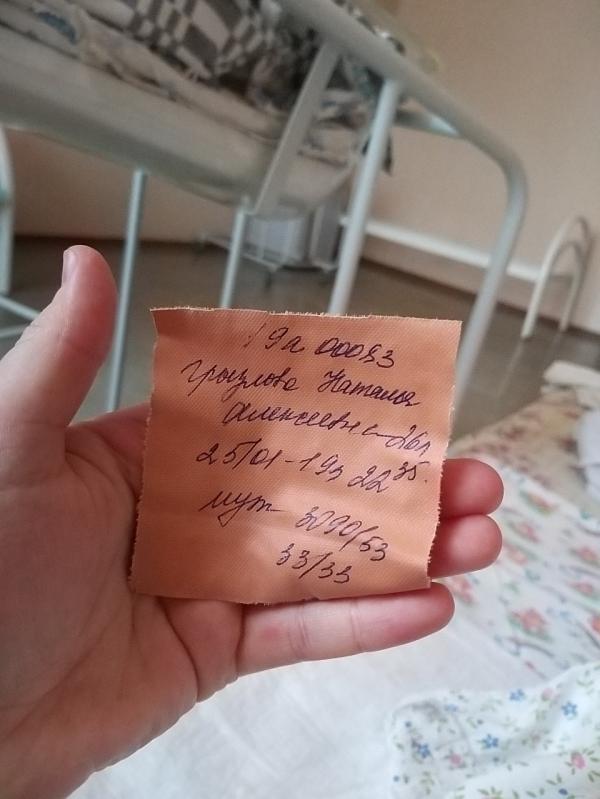 19а 00083
Наталья
Алексеевна 26л
25/01-19г 22 35.
муж 3090/53
33/33